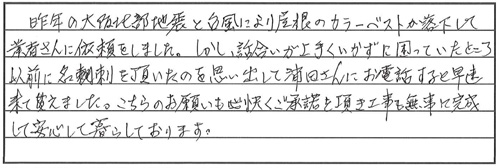 昨年の大阪北部地震と台風により屋根のカラーベストが落下して
業者さんに依頼をしました。しかし、話合いが上手くいかずに困っていたところ
以前に名刺を頂いたのを思い出して浦田さんにお電話すると早速
来て貰えました。こちらのお願いも心快くご承諾を頂き工事も無事に完成
して安心して暮らしております。